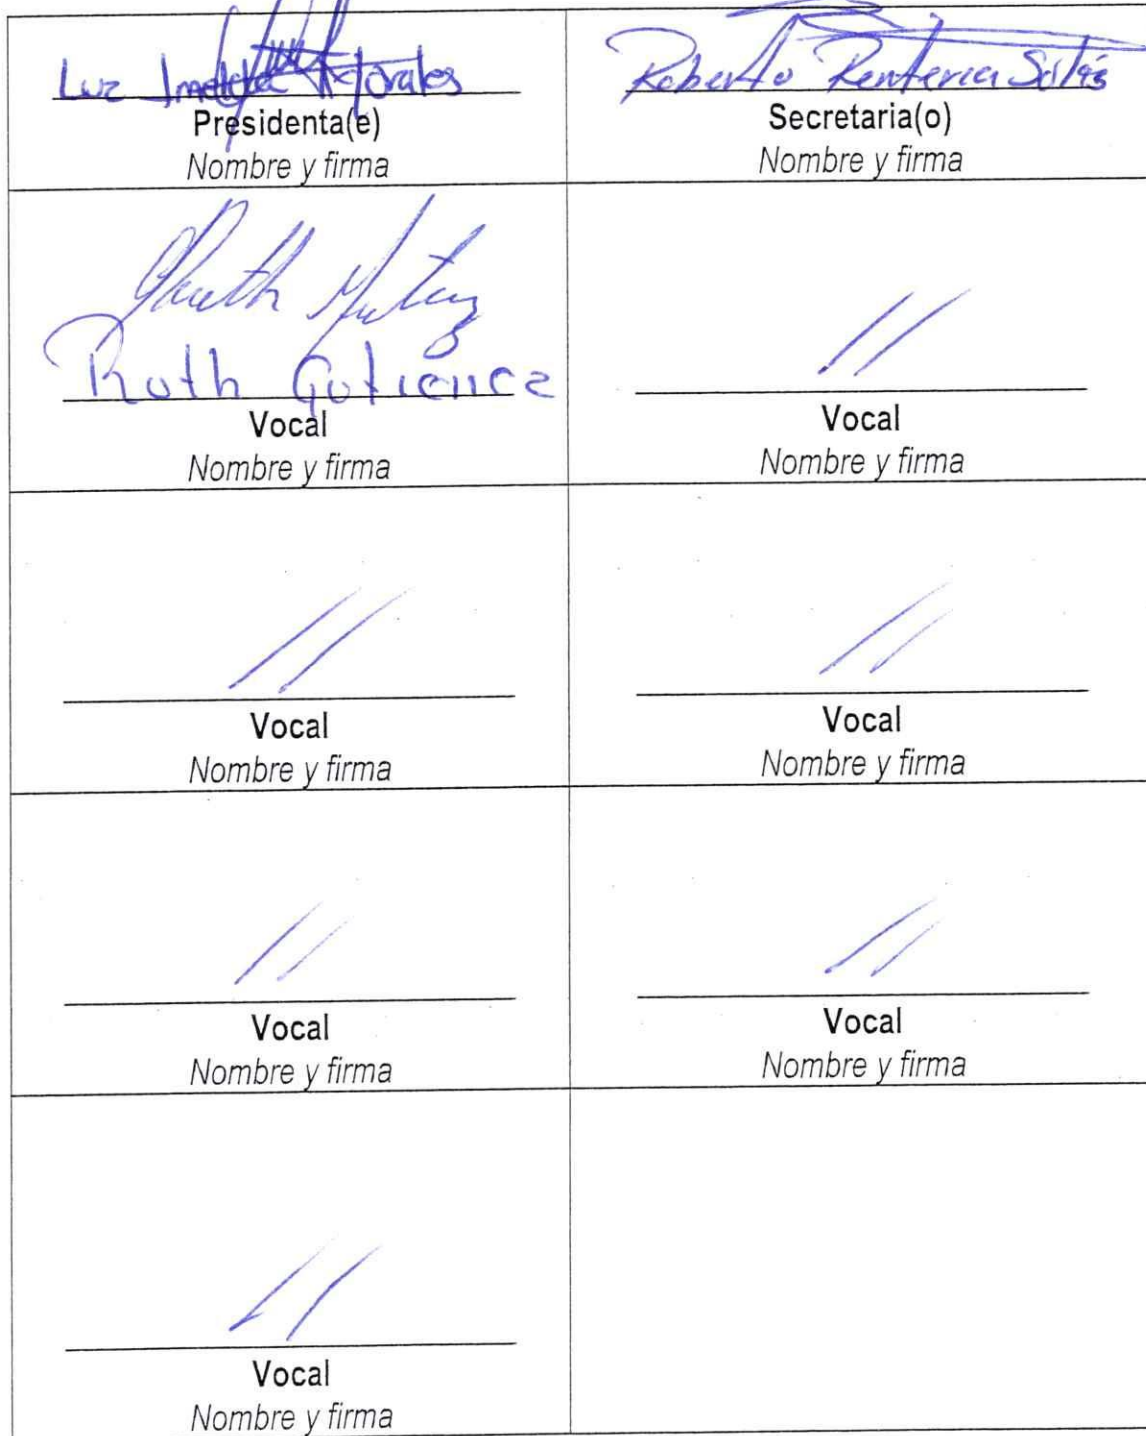 Luz Imelda Morales
Presidenta(e)
Nombre y firma
Roberto Renteria Solís
Secretaria(o)
Nombre y firma
Ruth Gutierrez
Vocal
Nombre y firma
//
Vocal
Nombre y firma
//
Vocal
Nombre y firma
//
Vocal
Nombre y firma
//
Vocal
Nombre y firma
//
Vocal
Nombre y firma
//
Vocal
Nombre y firma